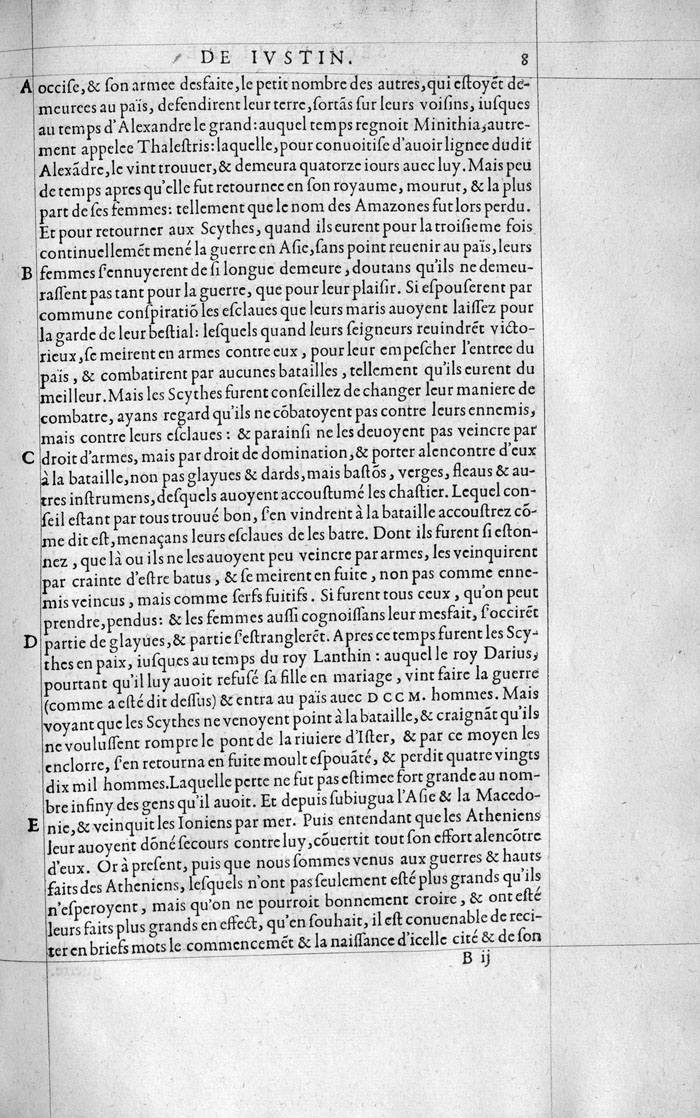 DE IVSTIN. 8
A occiſe,& ſon armee desfaite,le petit nombre des autres,qui eſtoyẽt de-
meurees au païs, defendirent leur terre,ſortãs ſur leurs voiſins, iuſques
au temps d'Alexandre le grand:auquel temps regnoit Minithia,autre-
ment appelee Thaleſtris:laquelle,pour conuoitiſe d'auoir lignee dudit
Alexãdre,le vint trouuer,& demeura quatorze iours auec luy. Mais peu
de temps apres qu'elle fut retournee en ſon royaume, mourut, & la plus
part de ſes femmes: tellement que le nom des Amazones fut lors perdu.
Et pour retourner aux Scythes, quand ils eurent pour la troiſieme fois
continuellemẽt mené la guerre en Aſie,ſans point reuenir au païs,leurs
B femmes ſ'ennuyerent de ſi longue demeure, doutans qu'ils ne demeu-
raſſent pas tant pour la guerre, que pour leur plaiſir. Si eſpouſerent par
commune conſpiratiõ les eſclaues que leurs maris auoyent laiſſez pour
la garde de leur beſtial: leſquels quand leurs ſeigneurs reuindrẽt victo-
rieux,ſe meirent en armes contre eux, pour leur empeſcher l'entree du
païs, & combatirent par aucunes batailles, tellement qu'ils eurent du
meilleur. Mais les Scythes furent conſeillez de changer leur maniere de
combatre, ayans regard qu'ils ne cõbatoyent pas contre leurs ennemis,
mais contre leurs eſclaues: & parainſi ne les deuoyent pas veincre par
C droit d'armes, mais par droit de domination,& porter alencontre d'eux
à la bataille,non pas glayues & dards,mais baſtõs, verges, fleaus & au-
tres inſtrumens,deſquels auoyent accouſtumé les chaſtier. Lequel con-
ſeil eſtant par tous trouué bon, ſ'en vindrent à la bataille accouſtrez cõ-
me dit eſt, menaçans leurs eſclaues de les batre. Dont ils furent ſi eſton-
nez, que là ou ils ne les auoyent peu veincre par armes, les veinquirent
par crainte d'eſtre batus, & ſe meirent en fuite, non pas comme enne-
mis veincus, mais comme ſerfs fuitifs. Si furent tous ceux, qu'on peut
prendre,pendus: & les femmes auſſi cognoiſſans leur mesfait, ſ'occirẽt
D partie de glayues,& partie ſ'eſtranglerẽt. Apres ce temps furent les Scy-
thes en paix, iuſques au temps du roy Lanthin: auquel le roy Darius,
pourtant qu'il luy auoit refuſé ſa fille en mariage, vint faire la guerre
(comme a eſté dit deſſus) & entra au païs auec DCCM. hommes. Mais
voyant que les Scythes ne venoyent point à la bataille,& craignãt qu'ils
ne vouluſſent rompre le pont de la riuiere d'Iſter, & par ce moyen les
enclorre, ſ'en retourna en fuite moult eſpouãté, & perdit quatre vingts
dix mil hommes.Laquelle perte ne fut pas eſtimee fort grande au nom-
bre infiny des gens qu'il auoit. Et depuis ſubiugua l'Aſie & la Macedo-
E nie,& veinquit les Ioniens par mer. Puis entendant que les Atheniens
leur auoyent dõné ſecours contre luy,cõuertit tout ſon effort alencõtre
d'eux. Or à preſent, puis que nous ſommes venus aux guerres & hauts
faits des Atheniens, leſquels n'ont pas ſeulement eſté plus grands qu'ils
n'eſperoyent, mais qu'on ne pourroit bonnement croire, & ont eſté
leurs faits plus grands en effect, qu'en ſouhait, il eſt conuenable de reci-
ter en briefs mots le commencemẽt & la naiſſance d'icelle cité & de ſon
B ij